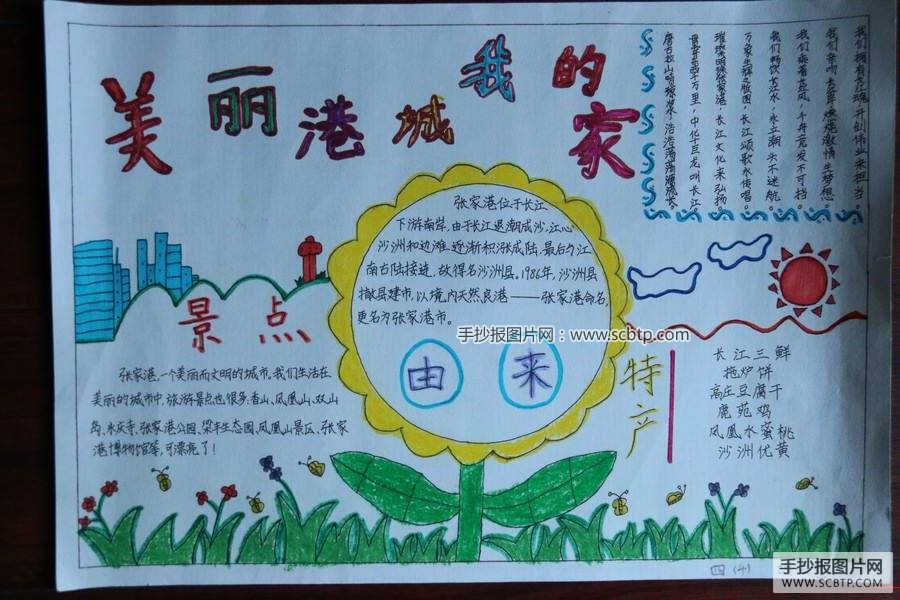 美丽港城我的家
我们拥有长江魂，开创伟业来担当。
我们亲吻长江岸，燃烧激情生梦想。
我们乘着长江风，千舟竞发不可挡。
我们畅饮长江水，永立潮头不迷航。
万象生辉之版图，长江颂歌永传唱。
璀璨明珠张家港，长江文化来弘扬。
中华巨龙叫长江
景点
张家港，一个美丽而文明的城市。我们生活在
美丽的城市中，旅游景点也很多：香山、凤凰山、双山
岛、永庆寺、张家港公园、梁丰生态园、凤凰山景区、张家
港博物馆等，可漂亮了！
张家港位于长江
下游南岸，由于长江退潮成沙，江心
沙洲和边滩，逐渐积涨成陆，最后与江
南古陆接连，故得名沙洲县，1986年，沙洲县
撤县建市，以境内天然良港——张家港命名，
更名为张家港市。
手抄报图片网：www.scbtp.com
由来
特产
长江三鲜
拖炉饼
高庄豆腐干
鹿苑鸡
凤凰水蜜桃
沙洲优黄
四（4）
手抄报图片网
WWW.SCBTP.COM